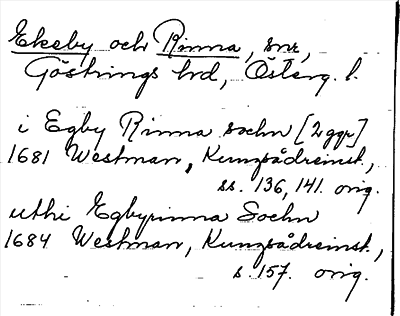 Ekeby och Rinna, snr,
Göstrings hd, Österg. l.
i Egby Rinna sochn [2 ggr]
1681 Westman, Kungsådreinst.,
ss. 136, 141. orig.
uthi Egbyrinna Sochn
1684 Westman, Kungsådreinst.,
s. 157. orig.